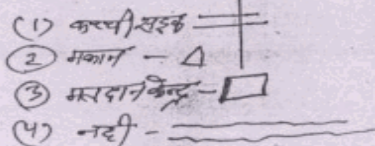 (1) कच्ची सड़क
(2) मकान -
(3) मतदान केन्द्र -
(4) नदी -